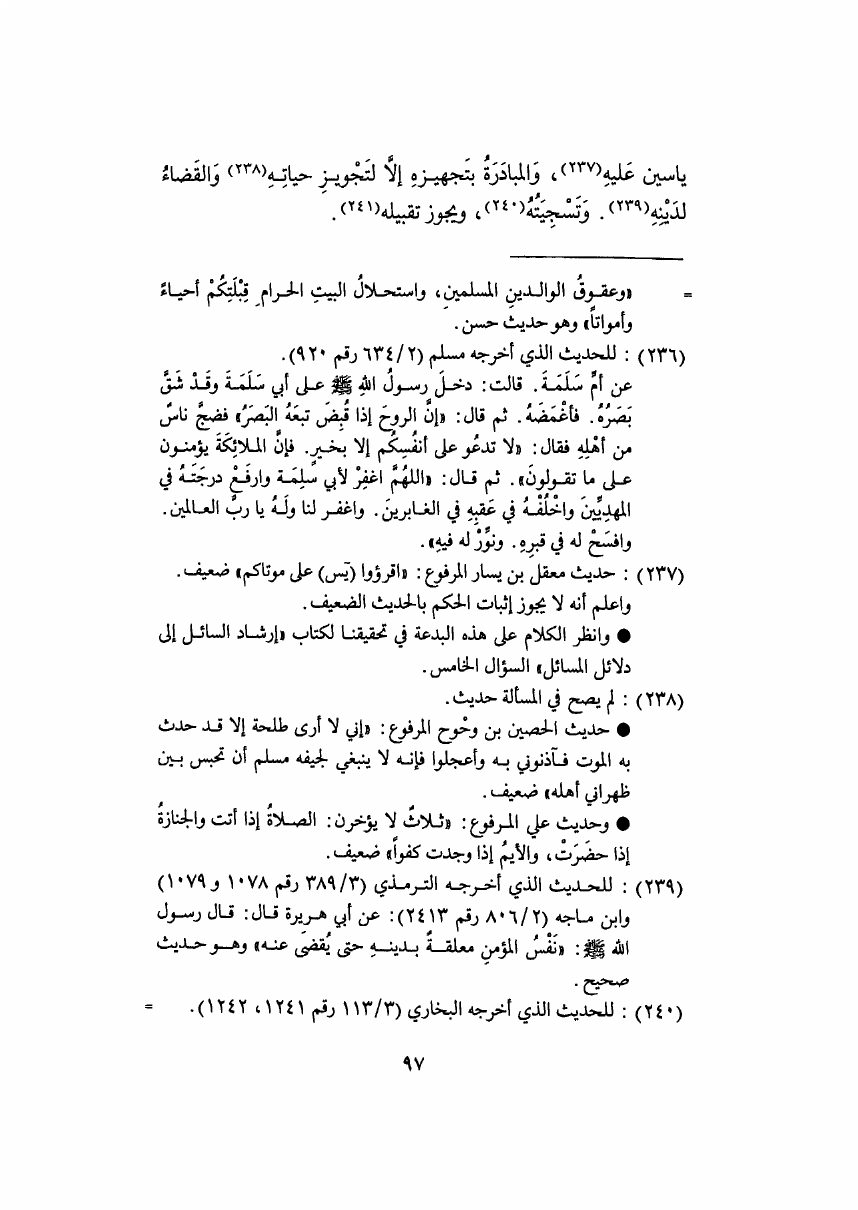 ياسين عَليهِ(٢٣٧)، وَالمبَادَرَةُ بتَجهيـزِهِ إلاَّ لتَجْويـزِ حياتِـهِ(٢٣٨) وَالقَضاءُ
لدَيْنِهِ(٢٣٩). وَتَسْجِيَتُهُ(٢٤٠)، ويجوز تقبيله(٢٤١).
= «وعقـوقُ الوالـدينِ المسلمينِ، واستحـلالُ البيتِ الحـرامِ قِبْلَتِكُمْ أحيـاءً
وأمواتاً» وهو حديث حسن.
(٢٣٦) : للحديث الذي أخرجه مسلم (٢/ ٦٣٤ رقم ٩٢٠).
عن أمِّ سَلَمَـةَ. قالت: دخـلَ رسـولُ اللهِ ﷺ عـلى أبي سَلَمَـةَ وقَـدْ شَقَّ
بَصَرُهُ. فأغْمَضَهُ. ثم قال: «إنَّ الروحَ إذا قُبِضَ تبعَهُ البَصَرُ» فضجَّ ناسٌ
من أهْلِهِ فقال: «لا تدعُو على أنفُسِكُم إلا بخـيرٍ. فإنَّ المـلائِكَةَ يؤمنـون
عـلى ما تقـولونَ». ثم قـال: «اللهُمَّ اغفِرْ لأبي سَلِمَـة وارفَـعْ درجَتَـهُ في
المهدِيِّينَ واخْلُفْـهُ في عَقبِهِ في الغـابرينَ. واغفـر لنا ولَـهُ يا ربَّ العـالمين.
وافسَحْ له في قبرِهِ. ونوِّرْ له فيهِ».
(٢٣٧) : حديث معقل بن يسار المرفوع: «اقرؤوا (يَس) على موتاكم» ضعيف.
واعلم أنه لا يجوز إثبات الحكم بالحديث الضعيف.
● وانظر الكلام على هذه البدعة في تحقيقنـا لكتاب «إرشـاد السائـل إلى
دلائل المسائل» السؤال الخامس.
(٢٣٨) : لم يصح في المسألة حديث.
● حديث الحصين بن وحْوح المرفوع: «إني لا أرى طلحة إلا قـد حدث
به الموت فـآذنوني بـه وأعجلوا فإنـه لا ينبغي لجيفه مسلم أن تحبس بـين
ظهراني أهله» ضعيف.
● وحديث علي المـرفوع: «ثـلاثٌ لا يؤخرن: الصـلاةُ إذا أتت والجنازةُ
إذا حضَرَتْ، والأيمُ إذا وجدت كفواً» ضعيف.
(٢٣٩) : للحـديث الذي أخـرجـه التـرمـذي (٣/ ٣٨٩ رقم ١٠٧٨ و ١٠٧٩)
وابن مـاجه (٢/ ٨٠٦ رقم ٢٤١٣): عن أبي هـريرة قـال: قـال رسـول
الله ﷺ: «نَفْسُ المؤمنِ معلقـةٌ بـدينـهِ حتى يُقضىَ عنـه» وهـو حـديث
صحيح.
(٢٤٠) : للحديث الذي أخرجه البخاري (٣/ ١١٣ رقم ١٢٤١، ١٢٤٢). =
٩٧